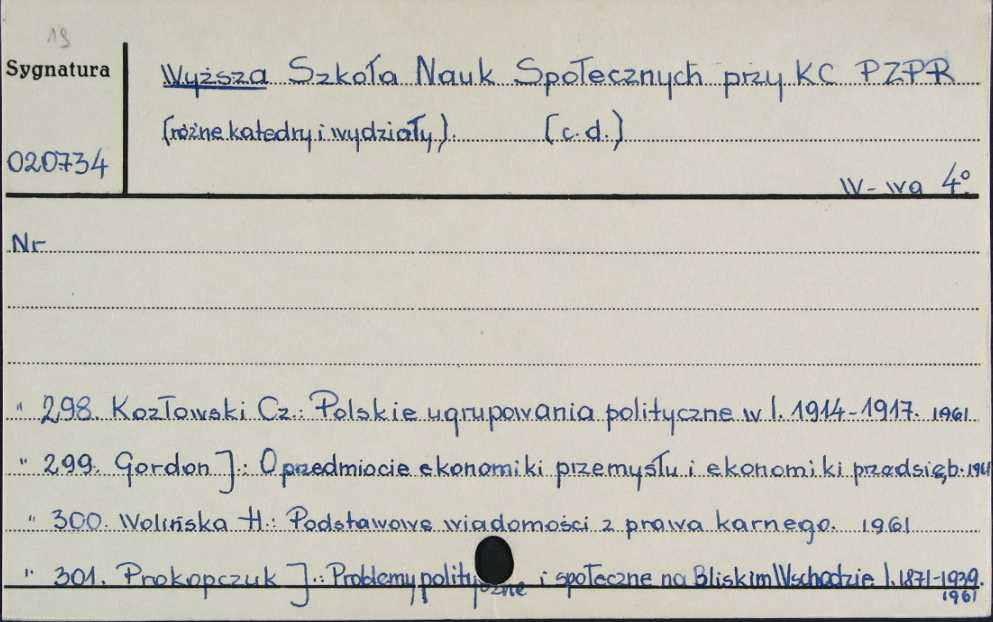 19
Sygnatura
Wyższa Szkoła Nauk Społecznych przy KC PZPR
(różne katedry i wydziały). (c.d.)
020734
W-wa 4°.
Nr
" 298. Kozłowski Cz.: Polskie ugrupowania polityczne w l. 1914-1917. 1961.
" 299. Gordon J.: O przedmiocie ekonomiki przemysłu i ekonomiki przedsięb. 1961
" 300. Wolińska H.: Podstawowe wiadomości z prawa karnego. 1961
" 301. Prokopczuk J.: Problemy polityczne i społeczne na Bliskim Wschodzie l. 1871-1939.
1961